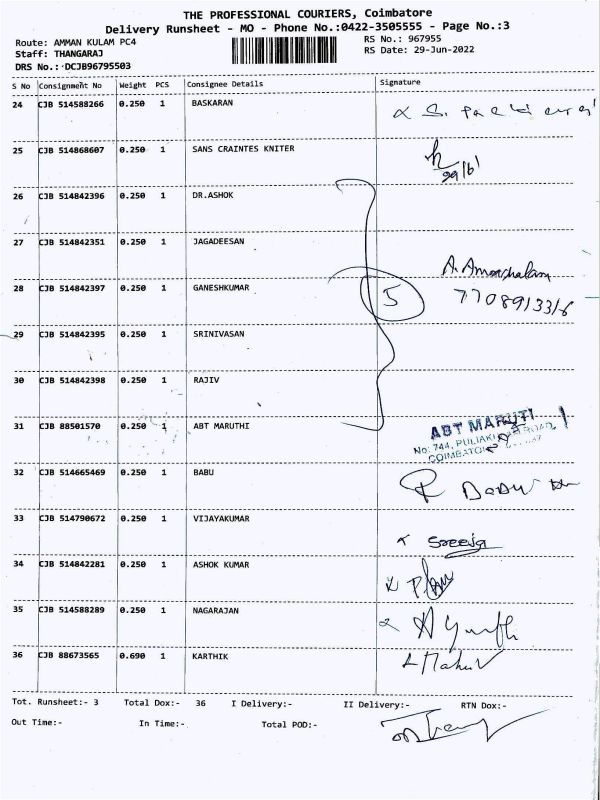 THE PROFESSIONAL COURIERS, Coimbatore
Delivery Runsheet - MO - Phone No.:0422-3505555 - Page No.:3
Route: AMMAN KULAM PC4 RS No.: 967955
Staff: THANGARAJ RS Date: 29-Jun-2022
DRS No.: DCJB96795503
S No Consignment No Weight PCS Consignee Details Signature
24 CJB 514588266 0.250 1 BASKARAN
25 CJB 514868607 0.250 1 SANS CRAINTES KNITER
29/6/
26 CJB 514842396 0.250 1 DR.ASHOK
27 CJB 514842351 0.250 1 JAGADEESAN
28 CJB 514842397 0.250 1 GANESHKUMAR 5
7708913316
29 CJB 514842395 0.250 1 SRINIVASAN
30 CJB 514842398 0.250 1 RAJIV
31 CJB 88501570 0.250 1 ABT MARUTHI ABT MARUTI
No: 744, PULIAKU
COIMBATO
32 CJB 514665469 0.250 1 BABU
33 CJB 514790672 0.250 1 VIJAYAKUMAR Sreeja
34 CJB 514842281 0.250 1 ASHOK KUMAR
35 CJB 514588289 0.250 1 NAGARAJAN
36 CJB 88673565 0.690 1 KARTHIK
Tot. Runsheet:- 3 Total Dox:- 36 I Delivery:- II Delivery:- RTN Dox:-
Out Time:- In Time:- Total POD:-